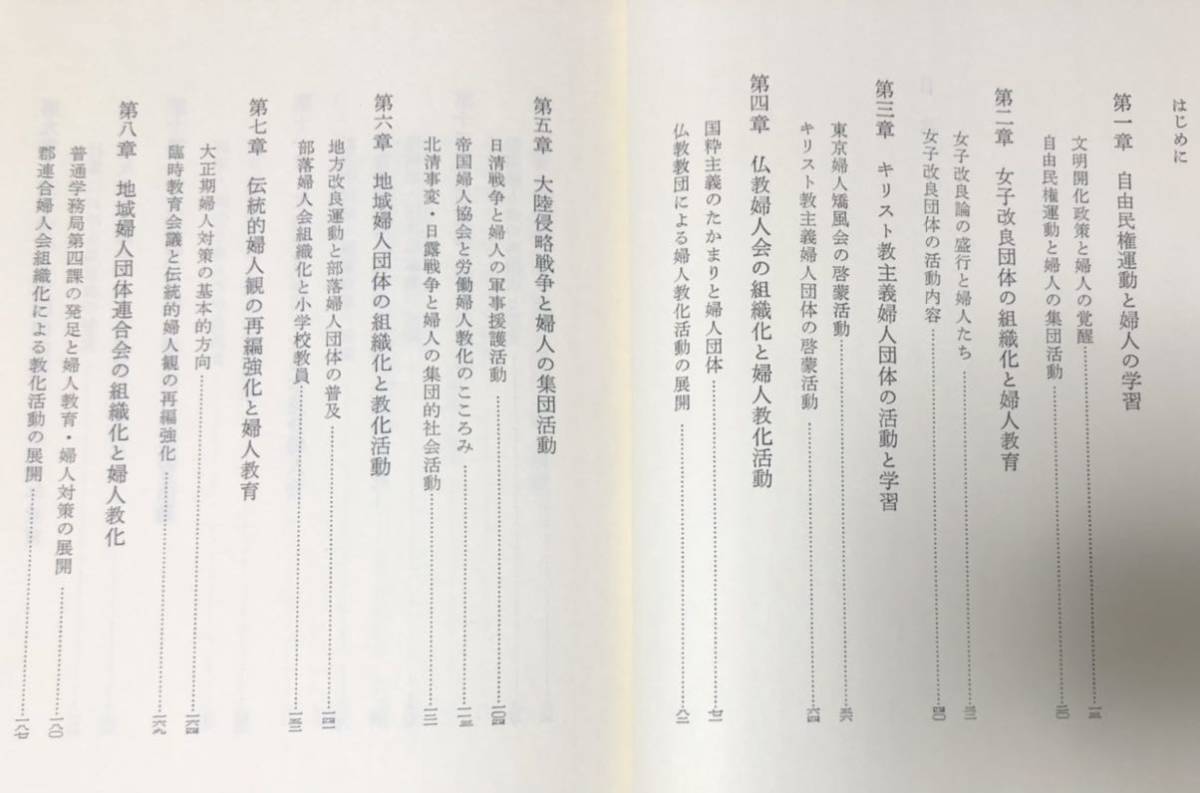 はじめに
第一章　自由民権運動と婦人の学習
文明開化政策と婦人の覚醒……一三
自由民権運動と婦人の集団活動……二〇
第二章　女子改良団体の組織化と婦人教育
女子改良論の盛行と婦人たち……三二
女子改良団体の活動内容……四〇
第三章　キリスト教主義婦人団体の活動と学習
東京婦人矯風会の啓蒙活動……五六
キリスト教主義婦人団体の啓蒙活動……六四
第四章　仏教婦人会の組織化と婦人教化活動
国粋主義のたかまりと婦人団体……七二
仏教教団による婦人教化活動の展開……八二
第五章　大陸侵略戦争と婦人の集団活動
日清戦争と婦人の軍事援護活動……一〇四
帝国婦人協会と労働婦人教化のこころみ……一一五
北清事変・日露戦争と婦人の集団的社会活動……一三一
第六章　地域婦人団体の組織化と教化活動
地方改良運動と部落婦人団体の普及……一四一
部落婦人会組織化と小学校教員……一五二
第七章　伝統的婦人観の再編強化と婦人教育
大正期婦人対策の基本的方向……一六四
臨時教育会議と伝統的婦人観の再編強化……一六九
第八章　地域婦人団体連合会の組織化と婦人教化
普通学務局第四課の発足と婦人教育・婦人対策の展開……一八〇
郡連合婦人会組織化による教化活動の展開……一八七